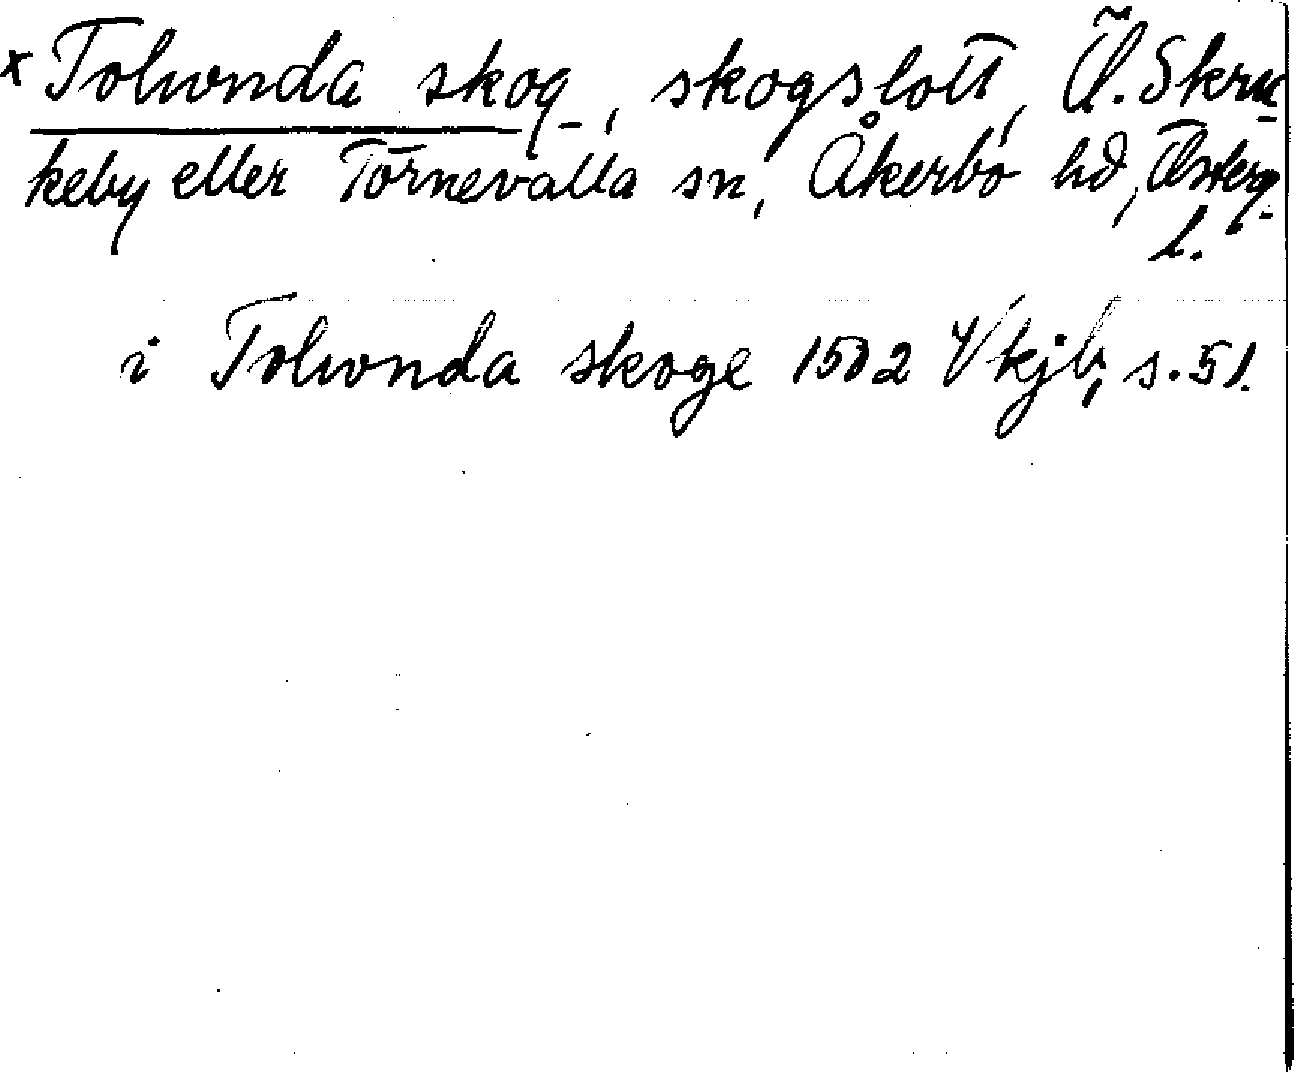 x Tolwnda skog, skogslott, Ö. Skru-
keby eller Törnevalla sn, Åkerbo hd, Österg.
l.
i Tolwnda skoge 1502 Vkjb, s. 51.